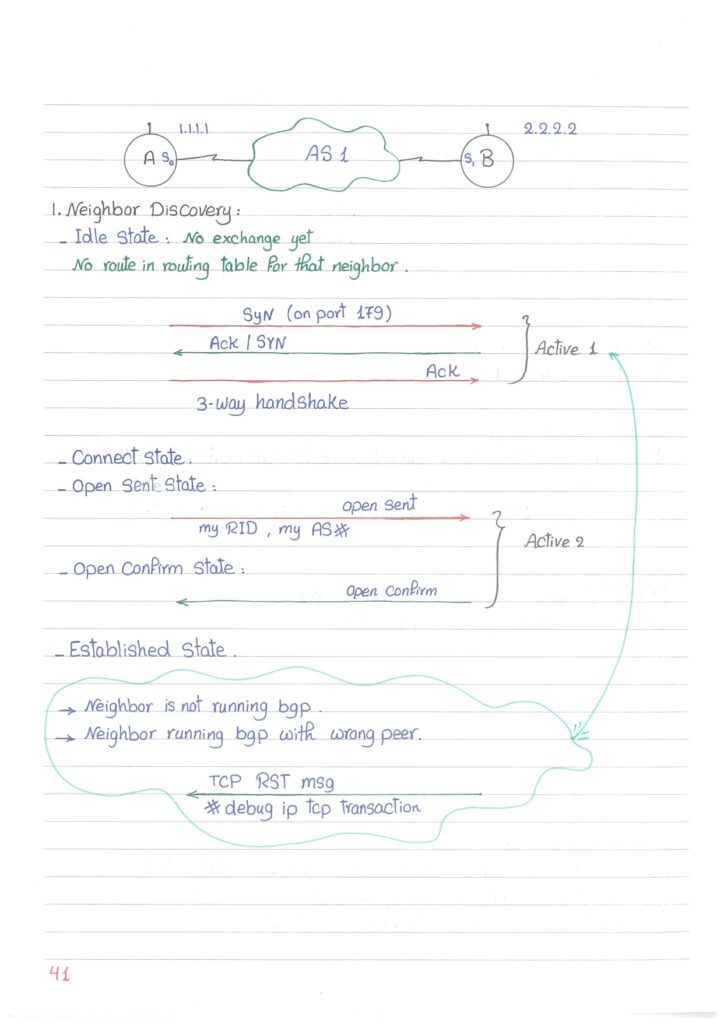 1.1.1.1
2.2.2.2
A S0
AS 1
S1 B
1. Neighbor Discovery:
- Idle State: No exchange yet
No route in routing table for that neighbor.
SyN (on port 179)
Ack / SYN
Active 1
Ack
3-way handshake
- Connect state.
- Open Sent State:
open sent
my RID, my AS#
Active 2
- Open Confirm State:
open Confirm
- Established State.
→ Neighbor is not running bgp.
→ Neighbor running bgp with wrong peer.
TCP RST msg
# debug ip tcp transaction
41